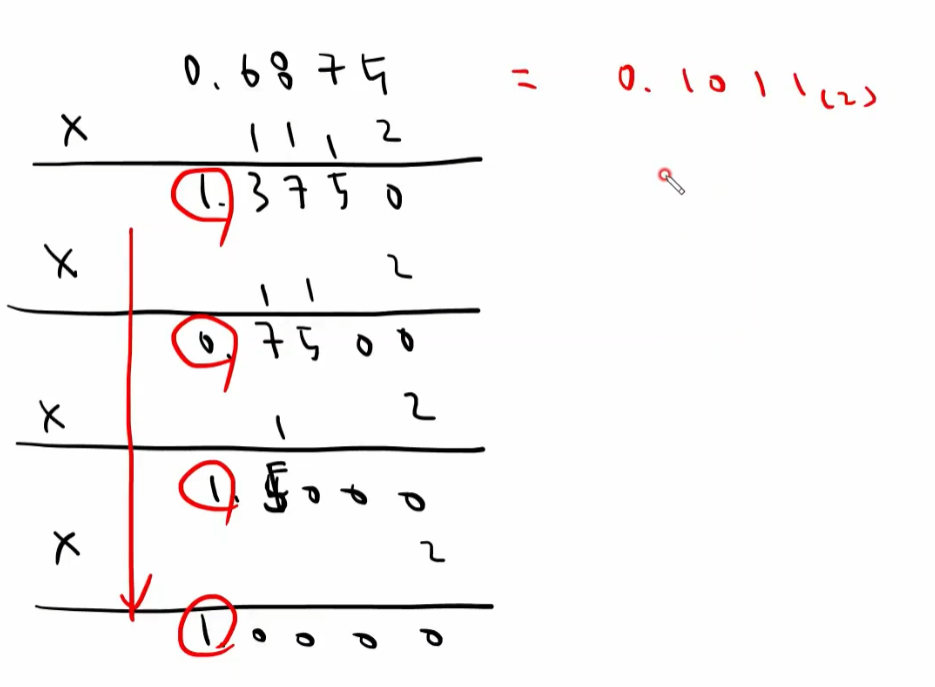 0.6875 = 0.1011(2)
x 1 1 1 2
1.3750
x 1 1 2
0.7500
x 1 2
1.5000
x 2
1.0000